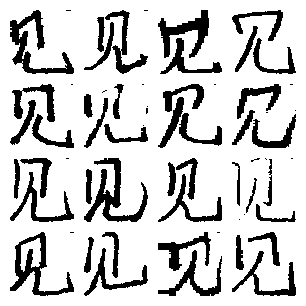 见见见见
见见见见
见见见见
见见见见